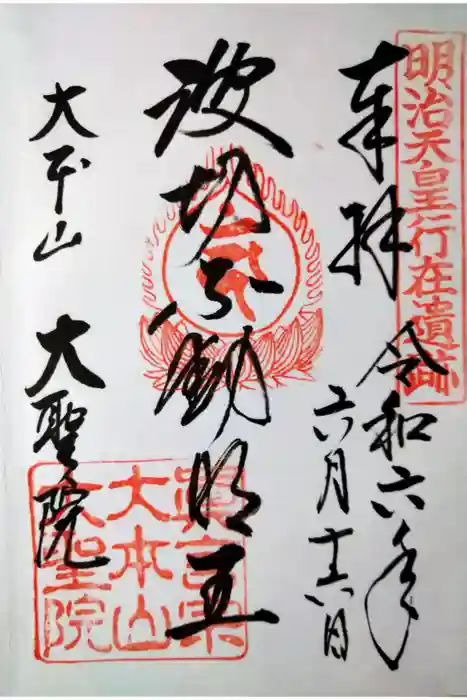 明治天皇行在遺跡
奉拝 令和六年
六月十六日
波切不動明王
大本山 大聖院
眞言宗
大本山
大聖院